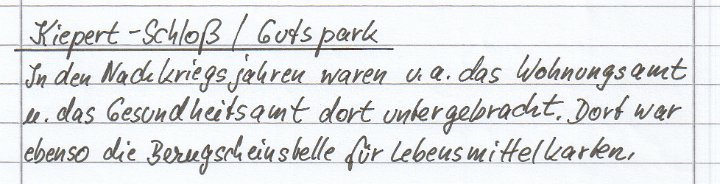 Kiepert-Schloß / Gutspark
In den Nachkriegsjahren waren u.a. das Wohnungsamt
u. das Gesundheitsamt dort untergebracht. Dort war
ebenso die Bezugscheinstelle für Lebensmittelkarten.